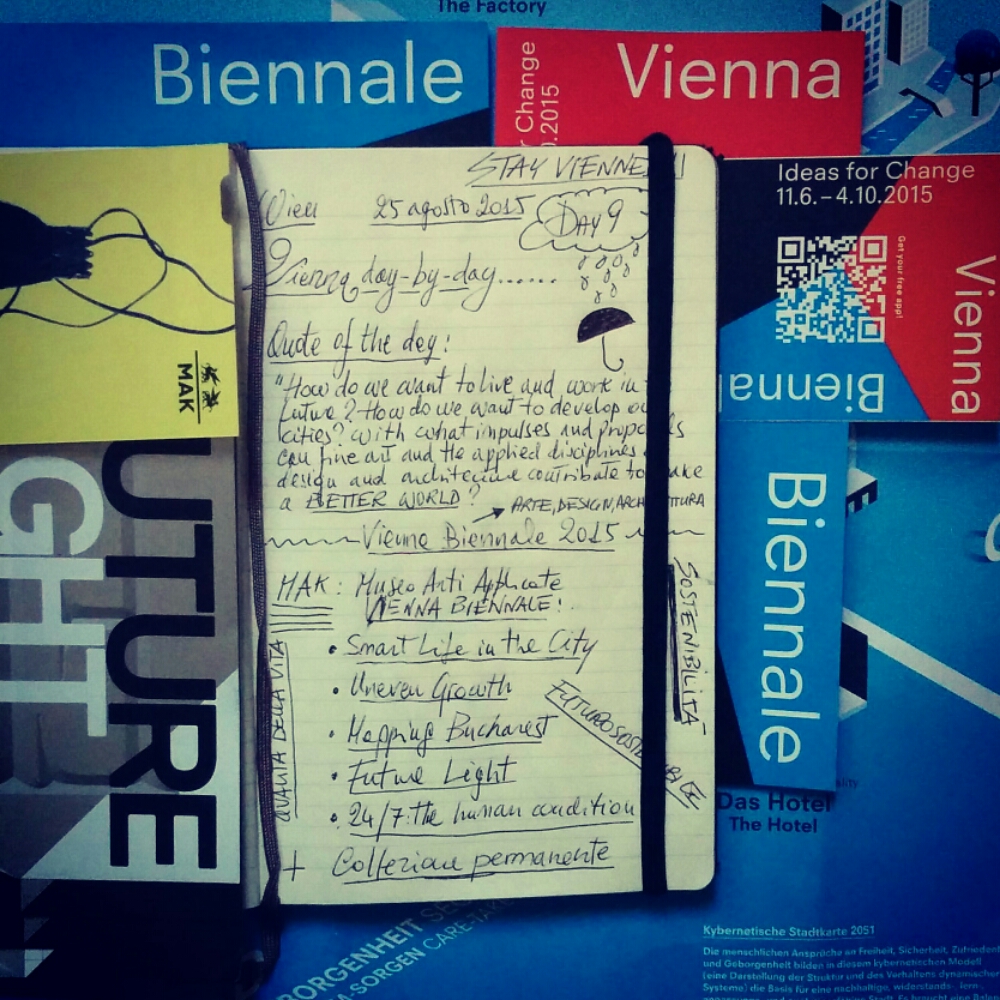 The Factory
Biennale
Vienna
r Change
0.2015
Ideas for Change
11.6. – 4.10.2015
Get your free app!
Vienna
Biennal
MAK
UTURE
GHT
STAY VIENNE
Wien 25 agosto 2015
DAY 9
Vienna day-by-day......
Quote of the day:
"How do we want to live and work in
future? How do we want to develop ou
cities? With what impulses and propo ls
can fine art and the applied disciplines
design and architecture contribute to ake
a BETTER WORLD?
ARTE, DESIGN, ARCH TTURA
Vienna Biennale 2015
MAK: Museo Arti Applicate
VIENNA BIENNALE:
• Smart Life in the City
• Uneven Growth
• Mapping Bucharest
• Future Light
• 24/7: the human condition
+ Collezione permanente
QUALITÀ DELLA VITA
SOSTENIBILITÀ
FUTURO SOSTE BILE
Biennale
ality
Das Hotel
The Hotel
BORGENHEIT
M-SORGEN CARE-TAK
Kybernetische Stadtkarte 2051
Die menschlichen Ansprüche an Freiheit, Sicherheit, Zufrieden
und Geborgenheit bilden in diesem kybernetischen Modell
(eine Darstellung der Struktur und des Verhaltens dynamischer
Systeme) die Basis für eine nachhaltige, widerstands-, lern-